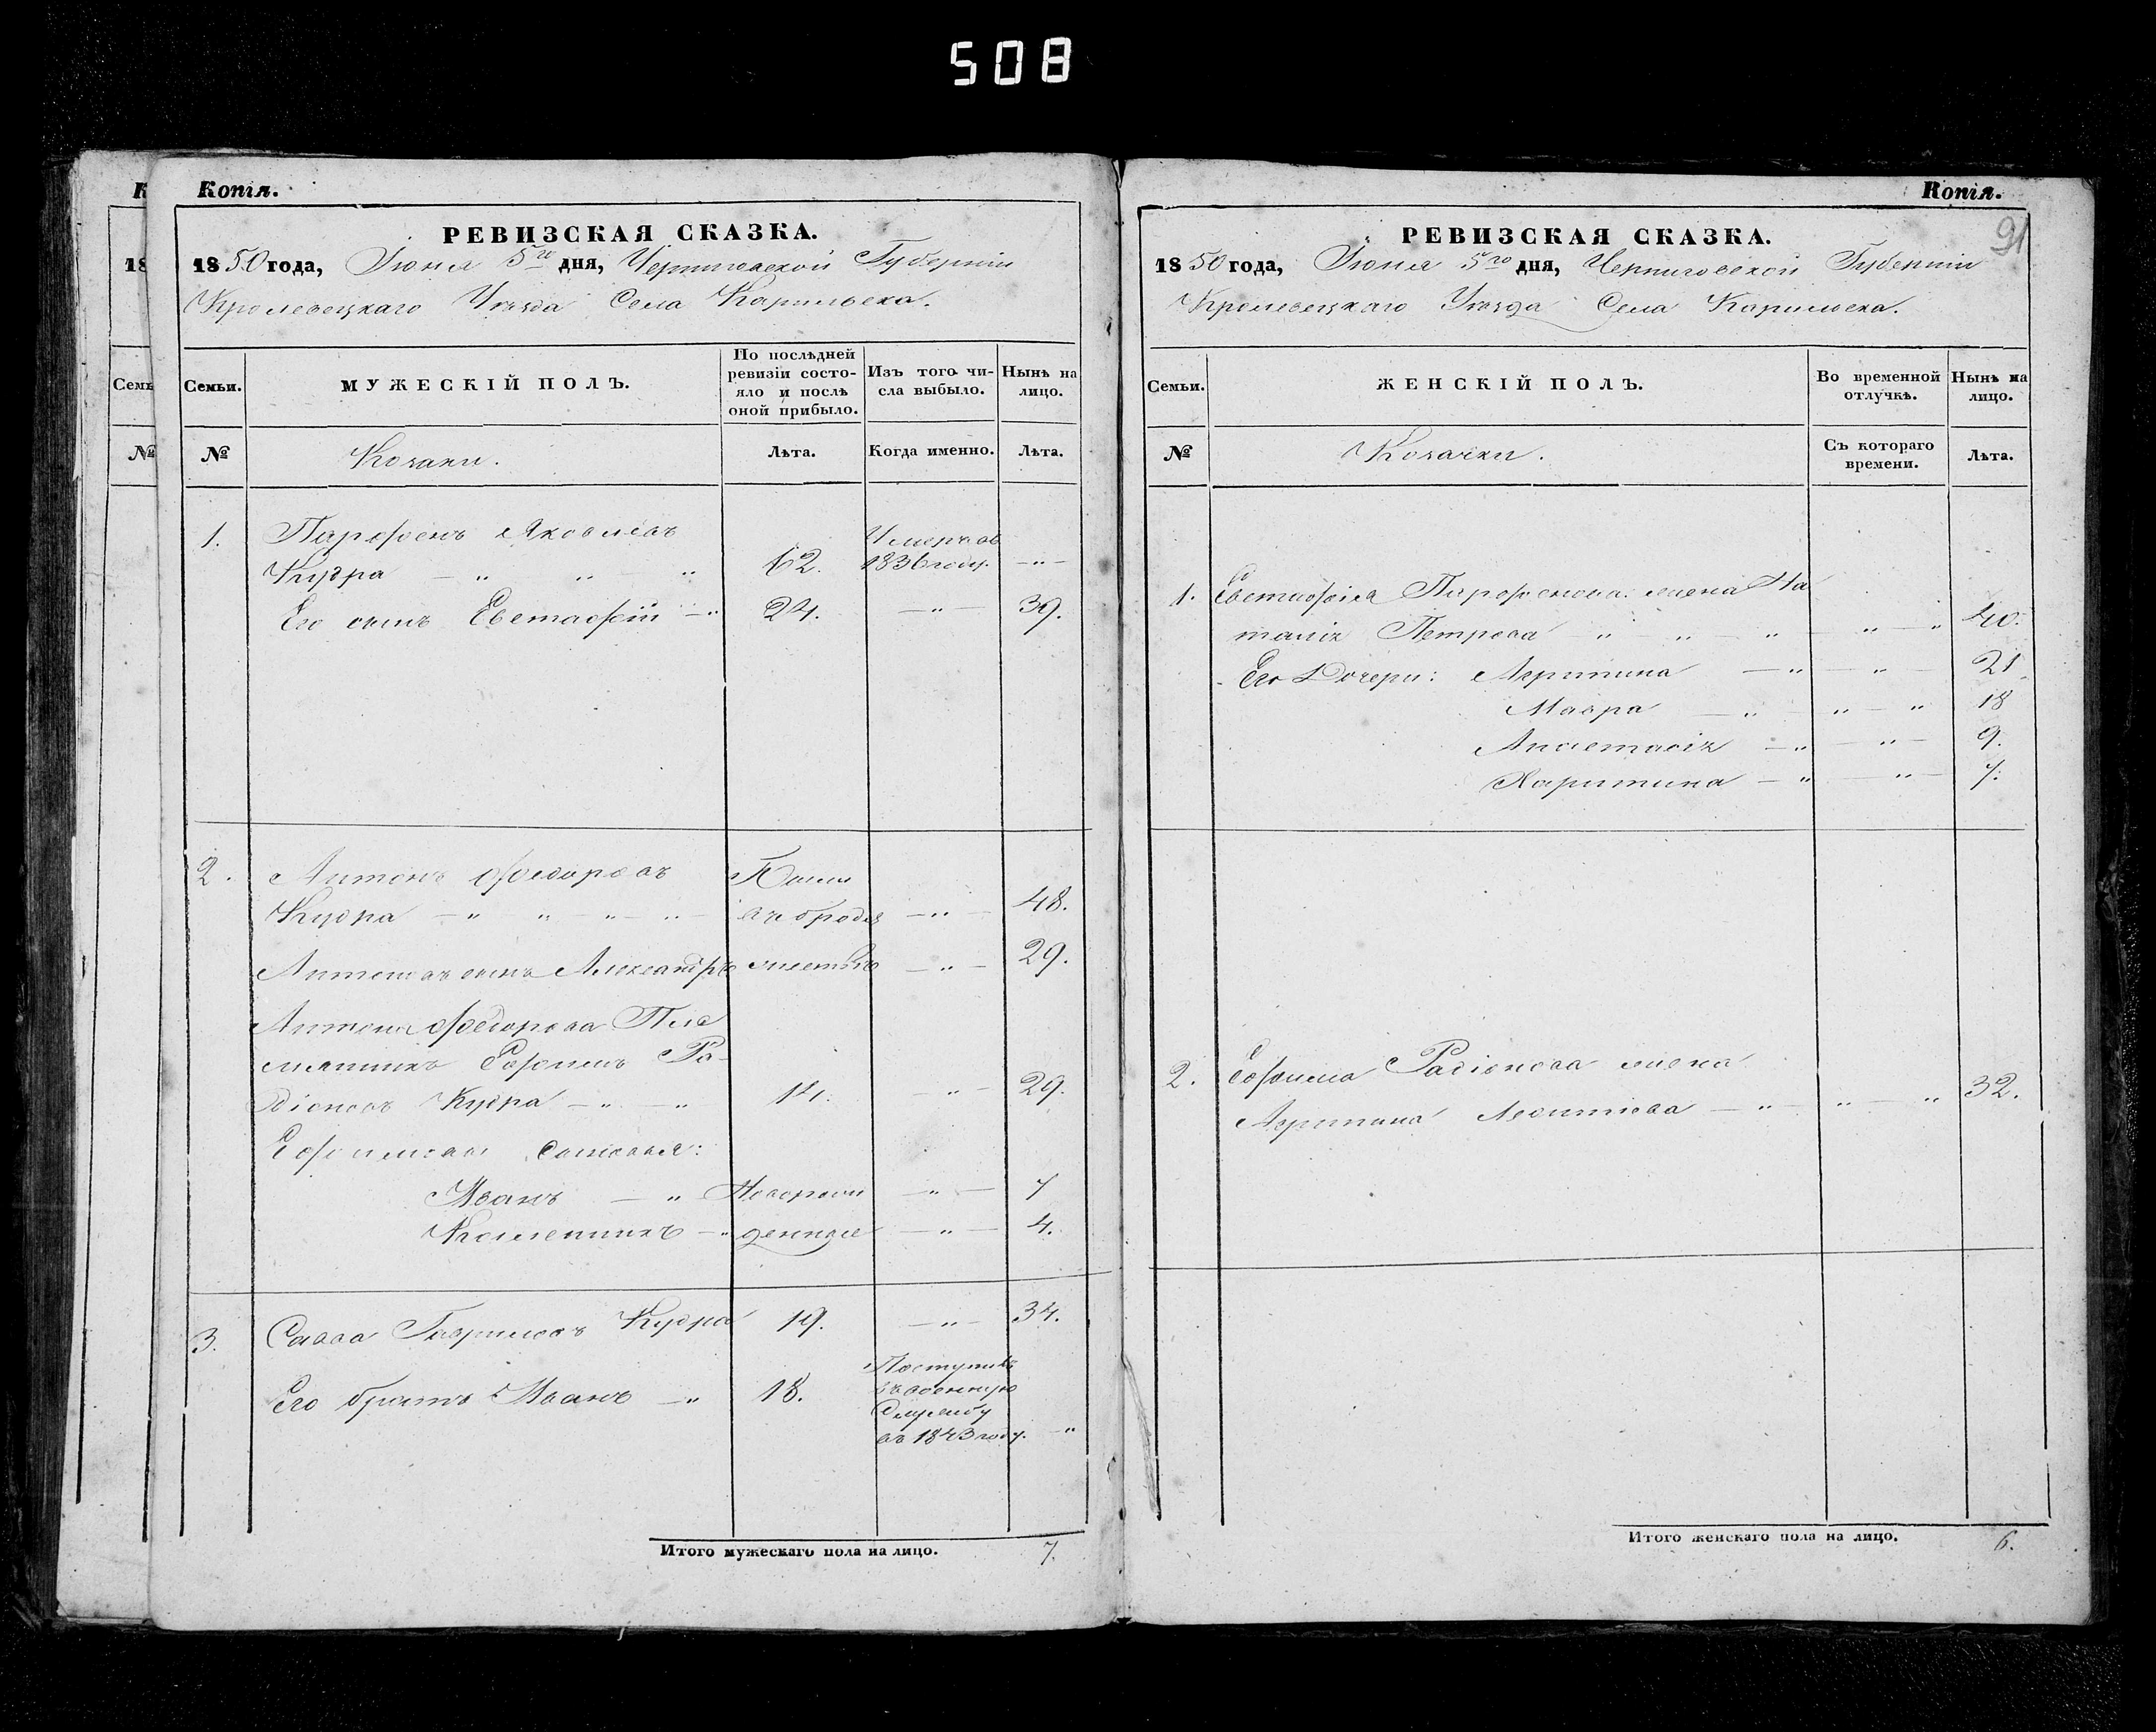 508
К
18
Семь
№
Копія.
РЕВИЗСКАЯ СКАЗКА.
1850 года, Іюня 5го дня, Черниговской Губерніи
Кролевецкаго Уѣзда Села Карильска.
Семьи.
МУЖЕСКІЙ ПОЛЪ.
По послѣдней
ревизіи состо-
яло и послѣ
оной прибыло.
Изъ того чи-
сла выбыло.
Нынѣ на
лицо.
№
Козаки.
Лѣта.
Когда именно.
Лѣта.
1. Парфенъ Яковлевъ Умеръ въ
Кудра — " " " 62. 1836 году. — " —
Его сынъ Евстафій — " 24. — " — 39.
2. Антонъ Федоровъ Были
Кудра — " " — " — " — въ бродя — " — 48.
Антоновъ сынъ Александръ — " — 29.
Антона Федорова Пле
мянникъ Ефимъ Ра-
діоновъ Кудра — " — " 14. — " — 29.
Ефимовы Сыновья:
Иванъ — " Новорож — " — 7
Климентій — " денные — " — 4.
3. Савва Гавриловъ Кудра 19. — " — 34.
Его братъ Иванъ — " 18. Поступилъ
въ военную
Службу
въ 1843 году. — "
Итого мужескаго пола на лицо. 7.
Копія.
91
РЕВИЗСКАЯ СКАЗКА.
1850 года, Іюня 5го дня, Черниговской Губерніи
Кролевецкаго Уѣзда Села Карильска.
Семьи.
ЖЕНСКІЙ ПОЛЪ.
Во временной
отлучкѣ.
Нынѣ на
лицо.
№
Козачки.
Съ котораго
времени.
Лѣта.
1. Евстафія Парфенова жена На
талія Петрова " — " " — " — " 40.
Его Дочери: — " — " — 21
Мавра — " — " — " 18
Анастасія — " — " — 9.
Харитина — " — " — 7.
2. Ефима Радіонова жена
Леонтіева — " — " — " 32.
Итого женскаго пола на лицо. 6.